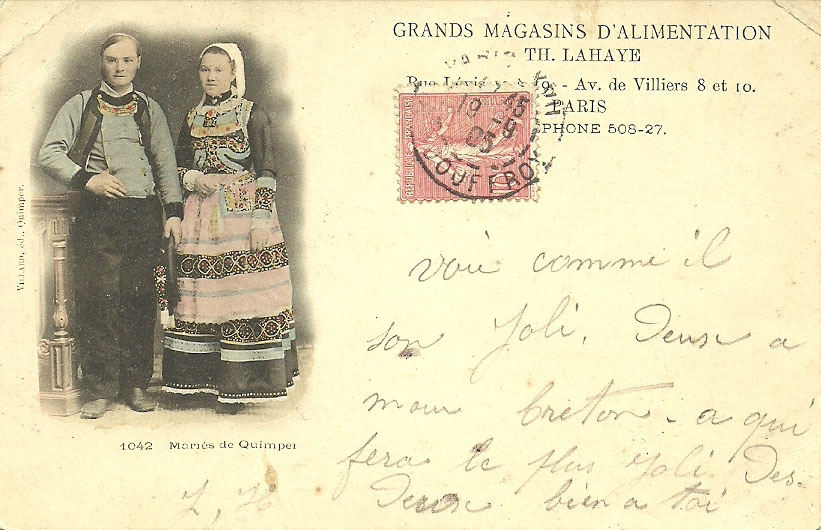 GRANDS MAGASINS D'ALIMENTATION
TH. LAHAYE
Rue Lévis - Av. de Villiers 8 et 10.
PARIS
PHONE 508-27.
REPUBLIQUE FRANÇAISE
10
19 - 9
05
JOUFFROY
VILLARD, éd., Quimper.
voie comme il
son Joli. Deux a
mour breton - a qui
fera le plus Joli des
Deux bien a toi
1042 Mariés de Quimper